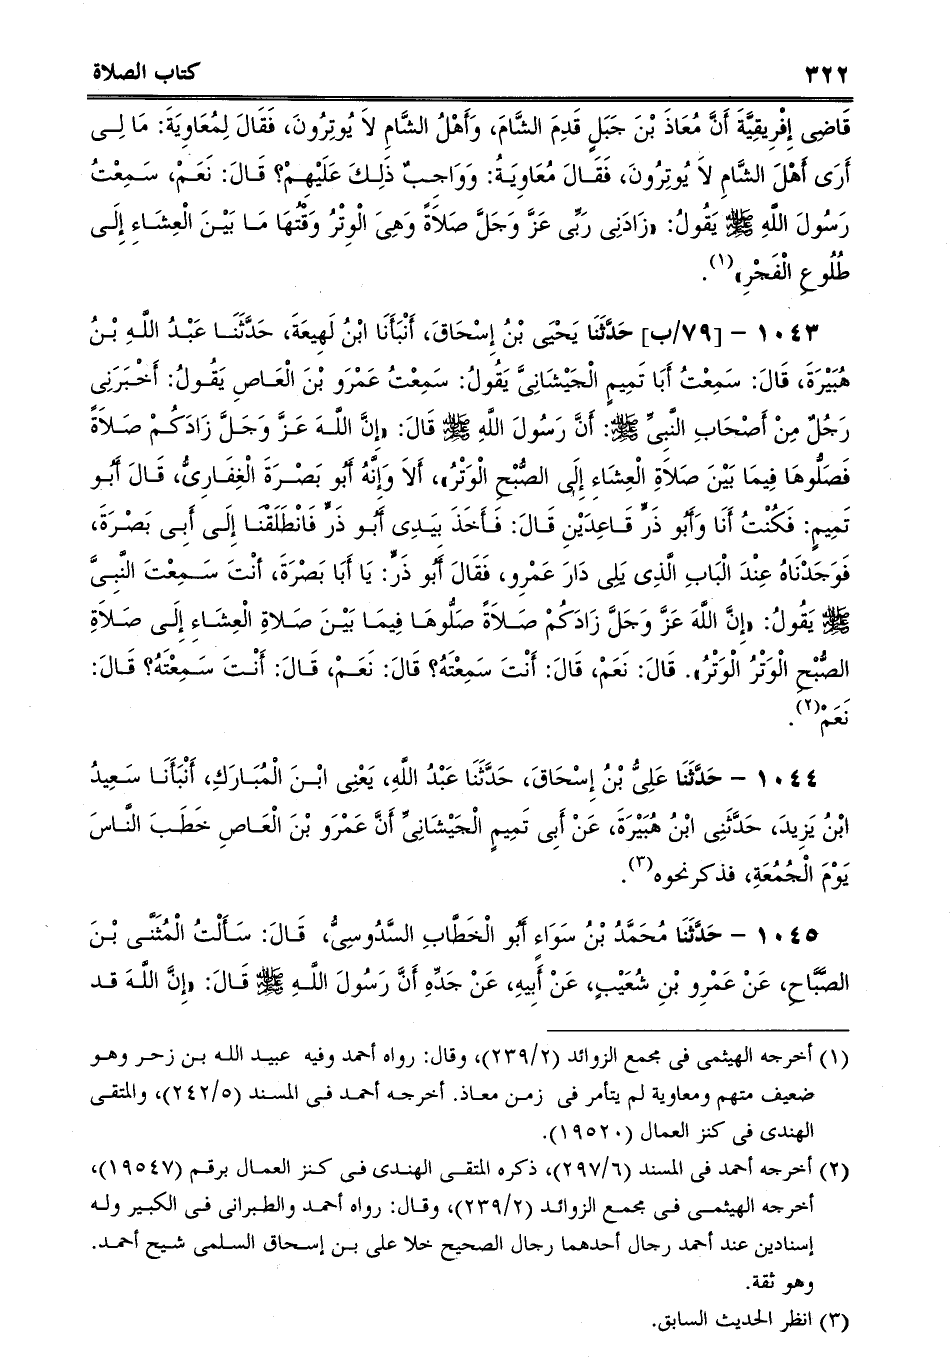 ٣٢٢ كتاب الصلاة
قَاضِى إِفْرِيقِيَّةَ أَنَّ مُعَاذَ بْنَ جَبَلٍ قَدِمَ الشَّامَ، وَأَهْلُ الشَّامِ لاَ يُوتِرُونَ، فَقَالَ لِمُعَاوِيَةَ: مَا لِى
أَرَى أَهْلَ الشَّامِ لاَ يُوتِرُونَ، فَقَالَ مُعَاوِيَةُ: وَوَاجِبٌ ذَلِكَ عَلَيْهِمْ؟ قَالَ: نَعَمْ، سَمِعْتُ
رَسُولَ اللَّهِ ﷺ يَقُولُ: «زَادَنِى رَبِّى عَزَّ وَجَلَّ صَلاَةً وَهِىَ الْوِتْرُ وَقْتُهَا مَا بَيْنَ الْعِشَاءِ إِلَى
طُلُوعِ الْفَجْرِ»(١).
١٠٤٣ - [٧٩/ب] حَدَّثَنَا يَحْيَى بْنُ إِسْحَاقَ، أَنْبَأَنَا ابْنُ لَهِيعَةَ، حَدَّثَنَا عَبْدُ اللَّهِ بْنُ
هُبَيْرَةَ، قَالَ: سَمِعْتُ أَبَا تَمِيمٍ الْجَيْشَانِىَّ يَقُولُ: سَمِعْتُ عَمْرَو بْنَ الْعَاصِ يَقُولُ: أَخْبَرَنِى
رَجُلٌ مِنْ أَصْحَابِ النَّبِىِّ ﷺ: أَنَّ رَسُولَ اللَّهِ ﷺ قَالَ: «إِنَّ اللَّهَ عَزَّ وَجَلَّ زَادَكُمْ صَلاَةً
فَصَلُّوهَا فِيمَا بَيْنَ صَلاَةِ الْعِشَاءِ إِلَى الصُّبْحِ الْوَتْرُ»، أَلاَ وَإِنَّهُ أَبُو بَصْرَةَ الْغِفَارِىُّ، قَالَ أَبُو
تَمِيمٍ: فَكُنْتُ أَنَا وَأَبُو ذَرٍّ قَاعِدَيْنِ قَالَ: فَأَخَذَ بِيَدِى أَبُو ذَرٍّ فَانْطَلَقْنَا إِلَى أَبِى بَصْرَةَ،
فَوَجَدْنَاهُ عِنْدَ الْبَابِ الَّذِى يَلِى دَارَ عَمْرٍو، فَقَالَ أَبُو ذَرٍّ: يَا أَبَا بَصْرَةَ، أَنْتَ سَمِعْتَ النَّبِىَّ
ﷺ يَقُولُ: «إِنَّ اللَّهَ عَزَّ وَجَلَّ زَادَكُمْ صَلاَةً صَلُّوهَا فِيمَا بَيْنَ صَلاةِ الْعِشَاءِ إِلَى صَلاَةِ
الصُّبْحِ الْوَتْرُ الْوَتْرُ». قَالَ: نَعَمْ، قَالَ: أَنْتَ سَمِعْتَهُ؟ قَالَ: نَعَمْ، قَالَ: أَنْتَ سَمِعْتَهُ؟ قَالَ:
نَعَمْ(٢).
١٠٤٤ - حَدَّثَنَا عَلِىُّ بْنُ إِسْحَاقَ، حَدَّثَنَا عَبْدُ اللَّهِ، يَعْنِى ابْنَ الْمُبَارَكِ، أَنْبَأَنَا سَعِيدُ
ابْنُ يَزِيدَ، حَدَّثَنِى ابْنُ هُبَيْرَةَ، عَنْ أَبِى تَمِيمٍ الْجَيْشَانِىِّ أَنَّ عَمْرَو بْنَ الْعَاصِ خَطَبَ النَّاسَ
يَوْمَ الْجُمُعَةِ، فذكر نحوه(٣).
١٠٤٥ - حَدَّثَنَا مُحَمَّدُ بْنُ سَوَاءٍ أَبُو الْخَطَّابِ السَّدُوسِىُّ، قَالَ: سَأَلْتُ الْمُثَنَّى بْنَ
الصَّبَّاحِ، عَنْ عَمْرِو بْنِ شُعَيْبٍ، عَنْ أَبِيهِ، عَنْ جَدِّهِ أَنَّ رَسُولَ اللَّهِ ﷺ قَالَ: «إِنَّ اللَّهَ قد
(١) أخرجه الهيثمى فى مجمع الزوائد (٢٣٩/٢)، وقال: رواه أحمد وفيه عبيد الله بن زحر وهو
ضعيف متهم ومعاوية لم يتأمر فى زمن معاذ. أخرجه أحمد فى المسند (٢٤٢/٥)، والمتقى
الهندى فى كنز العمال (١٩٥٢٠).
(٢) أخرجه أحمد فى المسند (٢٩٧/٦)، ذكره المتقى الهندى فى كنز العمال برقم (١٩٥٤٧)،
أخرجه الهيثمى فى مجمع الزوائد (٢٣٩/٢)، وقال: رواه أحمد والطبرانى فى الكبير وله
إسنادين عند أحمد رجال أحدهما رجال الصحيح خلا على بن إسحاق السلمى شيح أحمد.
وهو ثقة.
(٣) انظر الحديث السابق.